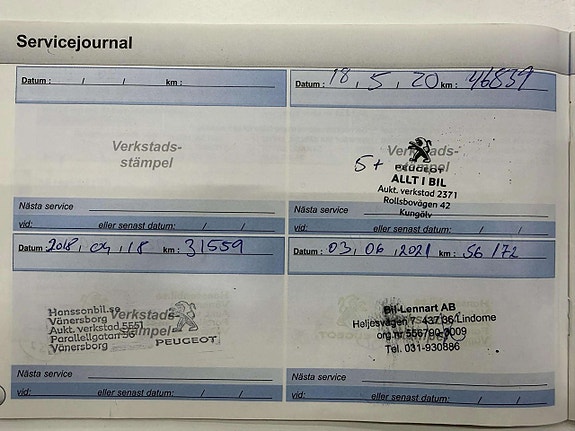 Servicejournal
Datum : / / km :
Verkstads-
stämpel
Nästa service
vid: eller senast datum: / /
Datum : 18, 5, 20 km : 46839
Verkstads-
stämpel
5+
PEUGEOT
ALLT I BIL
Aukt. verkstad 2371
Rollsbovägen 42
Kungälv
Nästa service
vid: eller senast datum: / /
Datum : 2018, 04, 18 km : 31559
Verkstads-
stämpel
Honssonbil.se
Vänersborg
Aukt. verkstad 5551
Parallellgatan 36
Vänersborg
PEUGEOT
Nästa service
vid: eller senast datum: / /
Datum : 03, 06, 2021 km : 56172
Bil-Lennart AB
Heljesvägen 7 437 36 Lindome
org.nr 556790-0009
Tel. 031-930886
PEUGEOT
Nästa service
vid: eller senast datum: / /